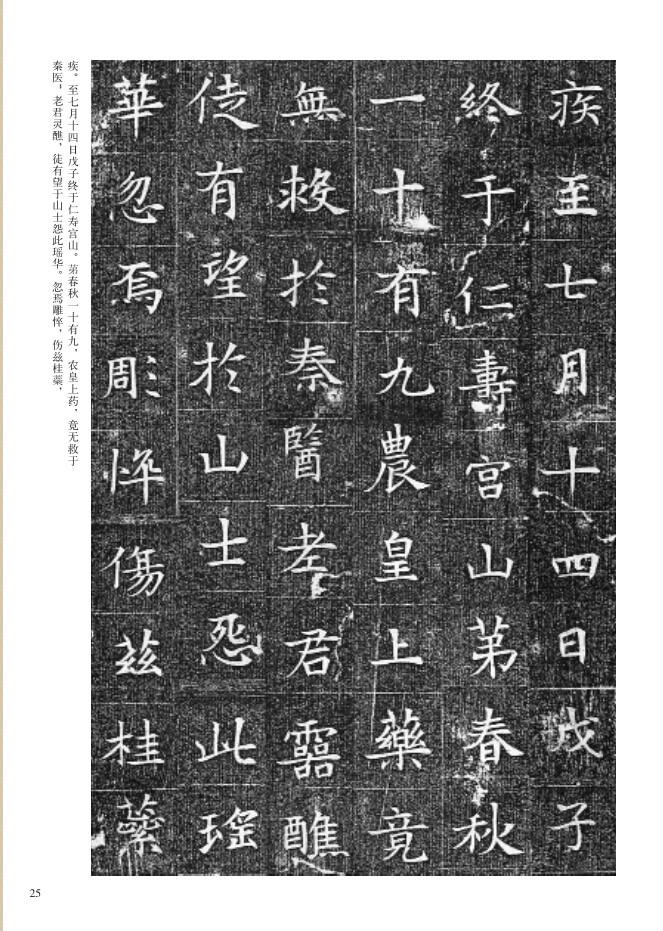 疾至七月十四日戊子
終于仁壽宮山苐春秋
一十有九農皇上藥竟
無救於秦醫老君靈醮
徒有望於山士怨此瑤
華忽焉彫悴傷茲桂蘂
疾。至七月十四日戊子终于仁寿宫山。苐春秋一十有九，农皇上药，竟无救于
秦医，老君灵醮，徒有望于山士怨此瑶华。忽焉雕悴，伤兹桂蘂，
25